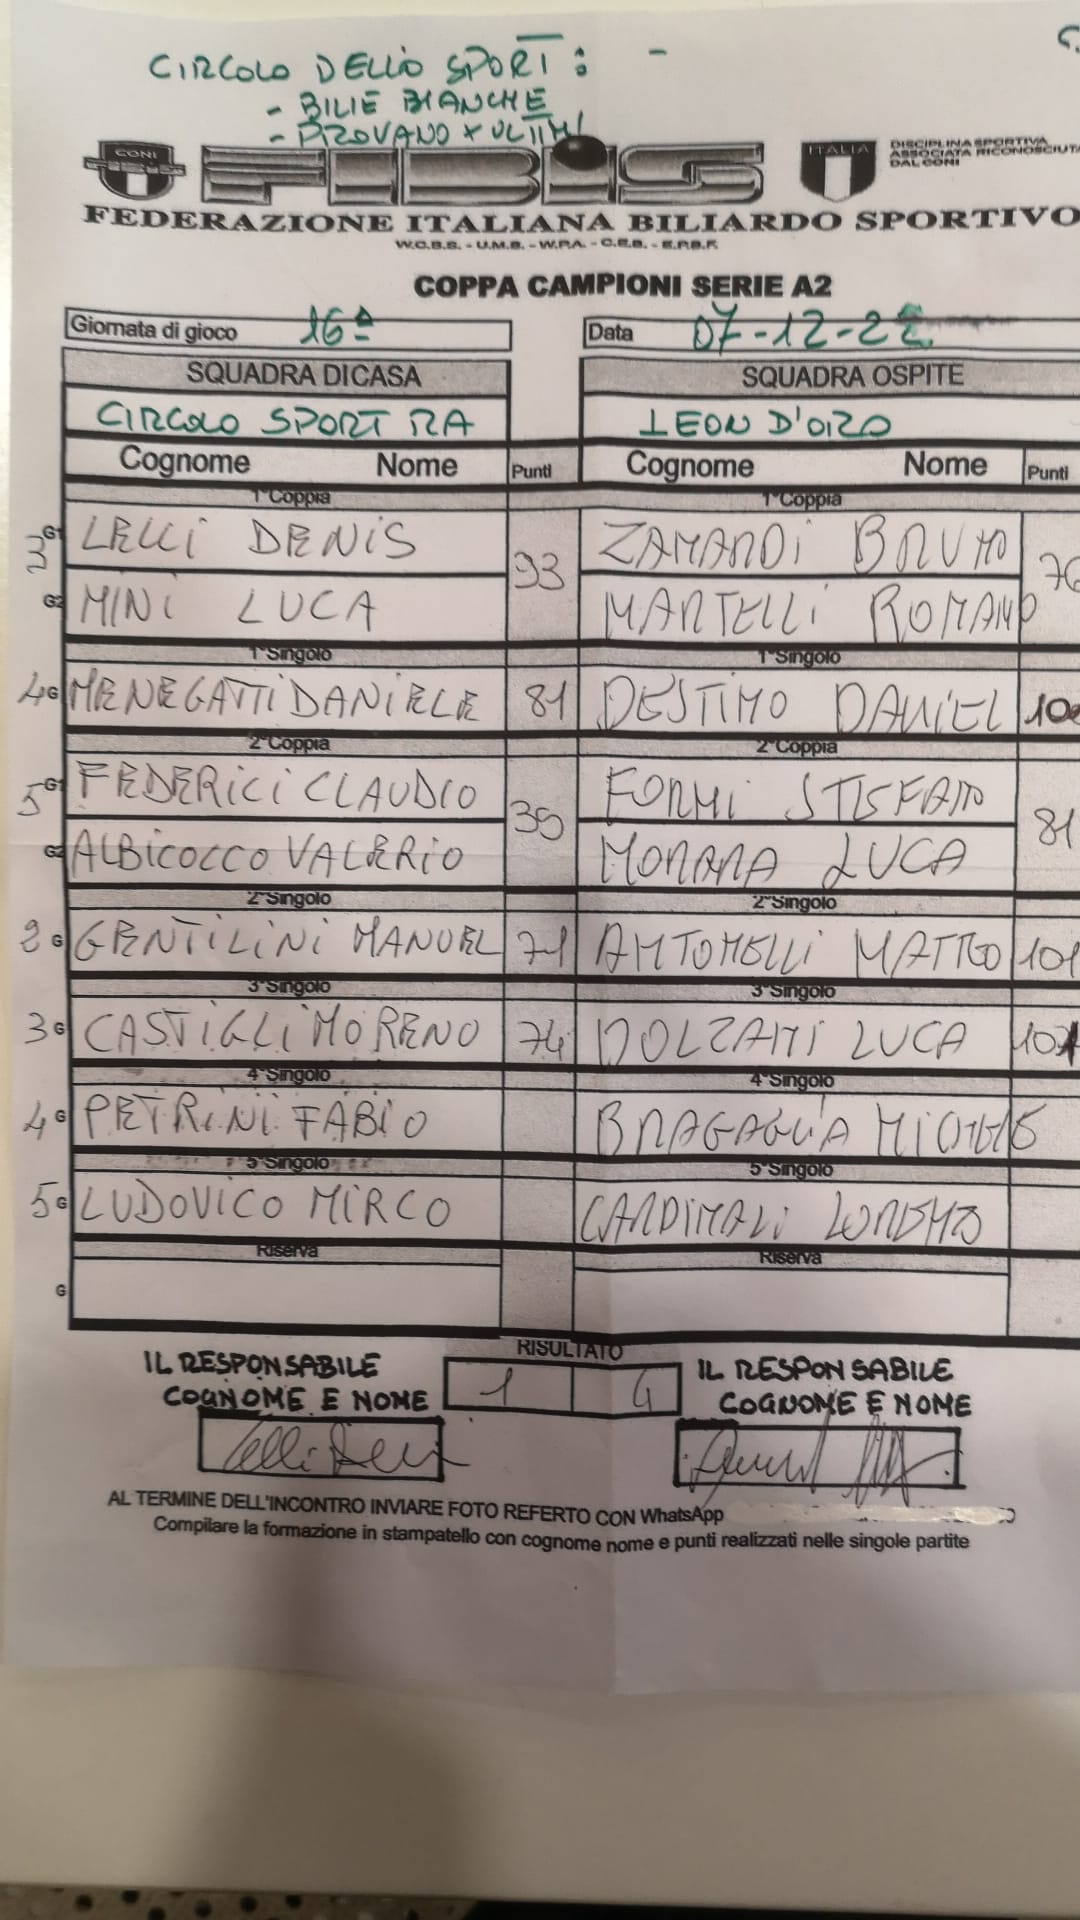 CIRCOLO DELLO SPORT: -
- BILIE BIANCHE
- PROVANO X ULTIMI
CONI
FIBiS
ITALIA
DISCIPLINA SPORTIVA
ASSOCIATA RICONOSCIUTA
DAL CONI
FEDERAZIONE ITALIANA BILIARDO SPORTIVO
W.C.B.S. - U.M.B. - W.P.A. - C.E.B. - E.P.B.F.
COPPA CAMPIONI SERIE A2
Giornata di gioco 16ª Data 07-12-22
SQUADRA DI CASA SQUADRA OSPITE
CIRCOLO SPORT RA LEON D'ORO
Cognome Nome Punti Cognome Nome Punti
1°Coppia 1°Coppia
3 G1 LELLI DENIS 93 ZAMARDI BRUNO 76
G2 MINI LUCA MARTELLI ROMANO
1°Singolo 1°Singolo
4 G MENEGATTI DANIELE 81 DESTINO DANIEL 10
2°Coppia 2°Coppia
5 G1 FEDERICI CLAUDIO 35 FORMI STEFANO 81
G2 ALBICOCCO VALERIO MORARA LUCA
2°Singolo 2°Singolo
2 G GENTILINI MANUEL 71 ANTONELLI MATTEO 101
3°Singolo 3°Singolo
3 G CASTIGLI MORENO 74 DOLZANI LUCA 101
4°Singolo 4°Singolo
4 G PETRINI FABIO BRAGAGLIA MICHELE
5°Singolo 5°Singolo
5 G LUDOVICO MIRCO CARDINALI LORENZO
Riserva Riserva
G
RISULTATO
1 4
IL RESPONSABILE IL RESPONSABILE
COGNOME E NOME COGNOME E NOME
Lelli Denis
AL TERMINE DELL'INCONTRO INVIARE FOTO REFERTO CON WhatsApp
Compilare la formazione in stampatello con cognome nome e punti realizzati nelle singole partite